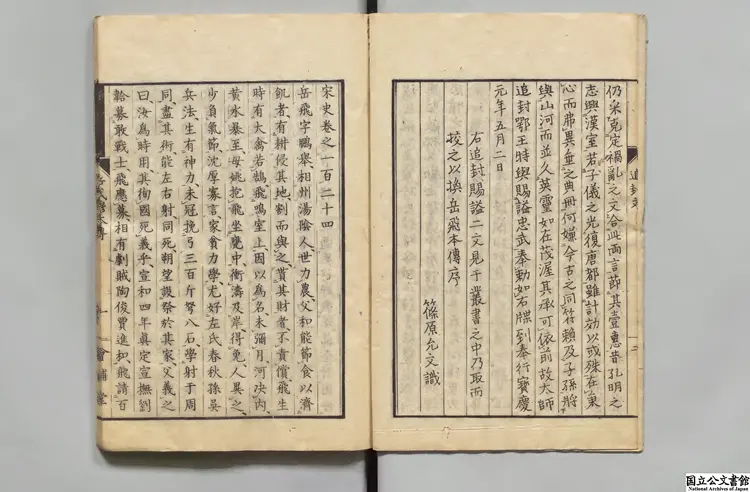 仍采克定禍亂之文合此兩言節其壹惠昔孔明之
志興漢室若子儀之光復唐都雖計効以或殊在秉
心而弗異垂之典冊何嫌今古之同符賴及子孫將
與山河而並久英靈如在茂渥其承可依前故太師
追封鄂王特與賜謚忠武奉勅如右牒到奉行寶慶
元年五月二日
右追封賜謚二文見于叢書之中乃取而
挍之以換岳飛本傳序
篠原允文識
追封文
二
宋史卷之一百二十四
岳飛字鵬舉相州湯陰人世力農父和能節食以濟
飢者有耕侵其地割而與之貰其財者不責償飛生
時有大禽若鵠飛鳴室上因以為名未彌月河决内
黄水暴至母姚抱飛坐甕中衝濤及岸得免人異之
少負氣節沈厚寡言家貧力學尤好左氏春秋孫吳
兵法生有神力未冠挽弓三百斤弩八石學射于周
同盡其術能左右射同死朔望設祭於其家父義之
曰汝為時用其徇國死義乎宣和四年真定宣撫劉
韐募敢戰士飛應募相有劇賊陶俊賈進和飛請百
一
輔堂
国立公文書館
National Archives of Japan